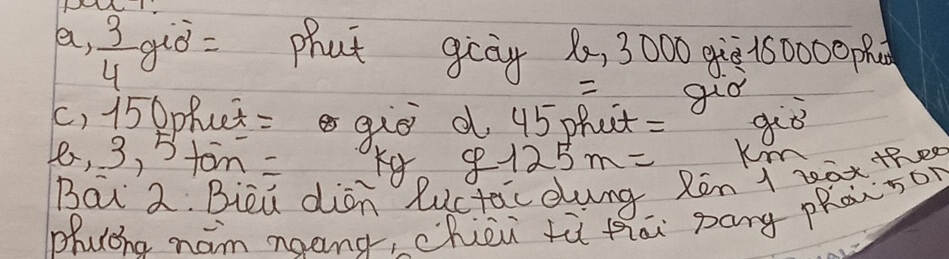 a, 3/4 giờ = phút giây b, 3000 giờ 160000 phút
= giờ
c, 150 phút = giờ d, 45 phút = giờ
e, 3,5 tấn = kg g 125m = km
Bài 2: Biểu diễn lực tác dụng lên 1 vật theo
phương nằm ngang, chiều từ trái sang phải 50N